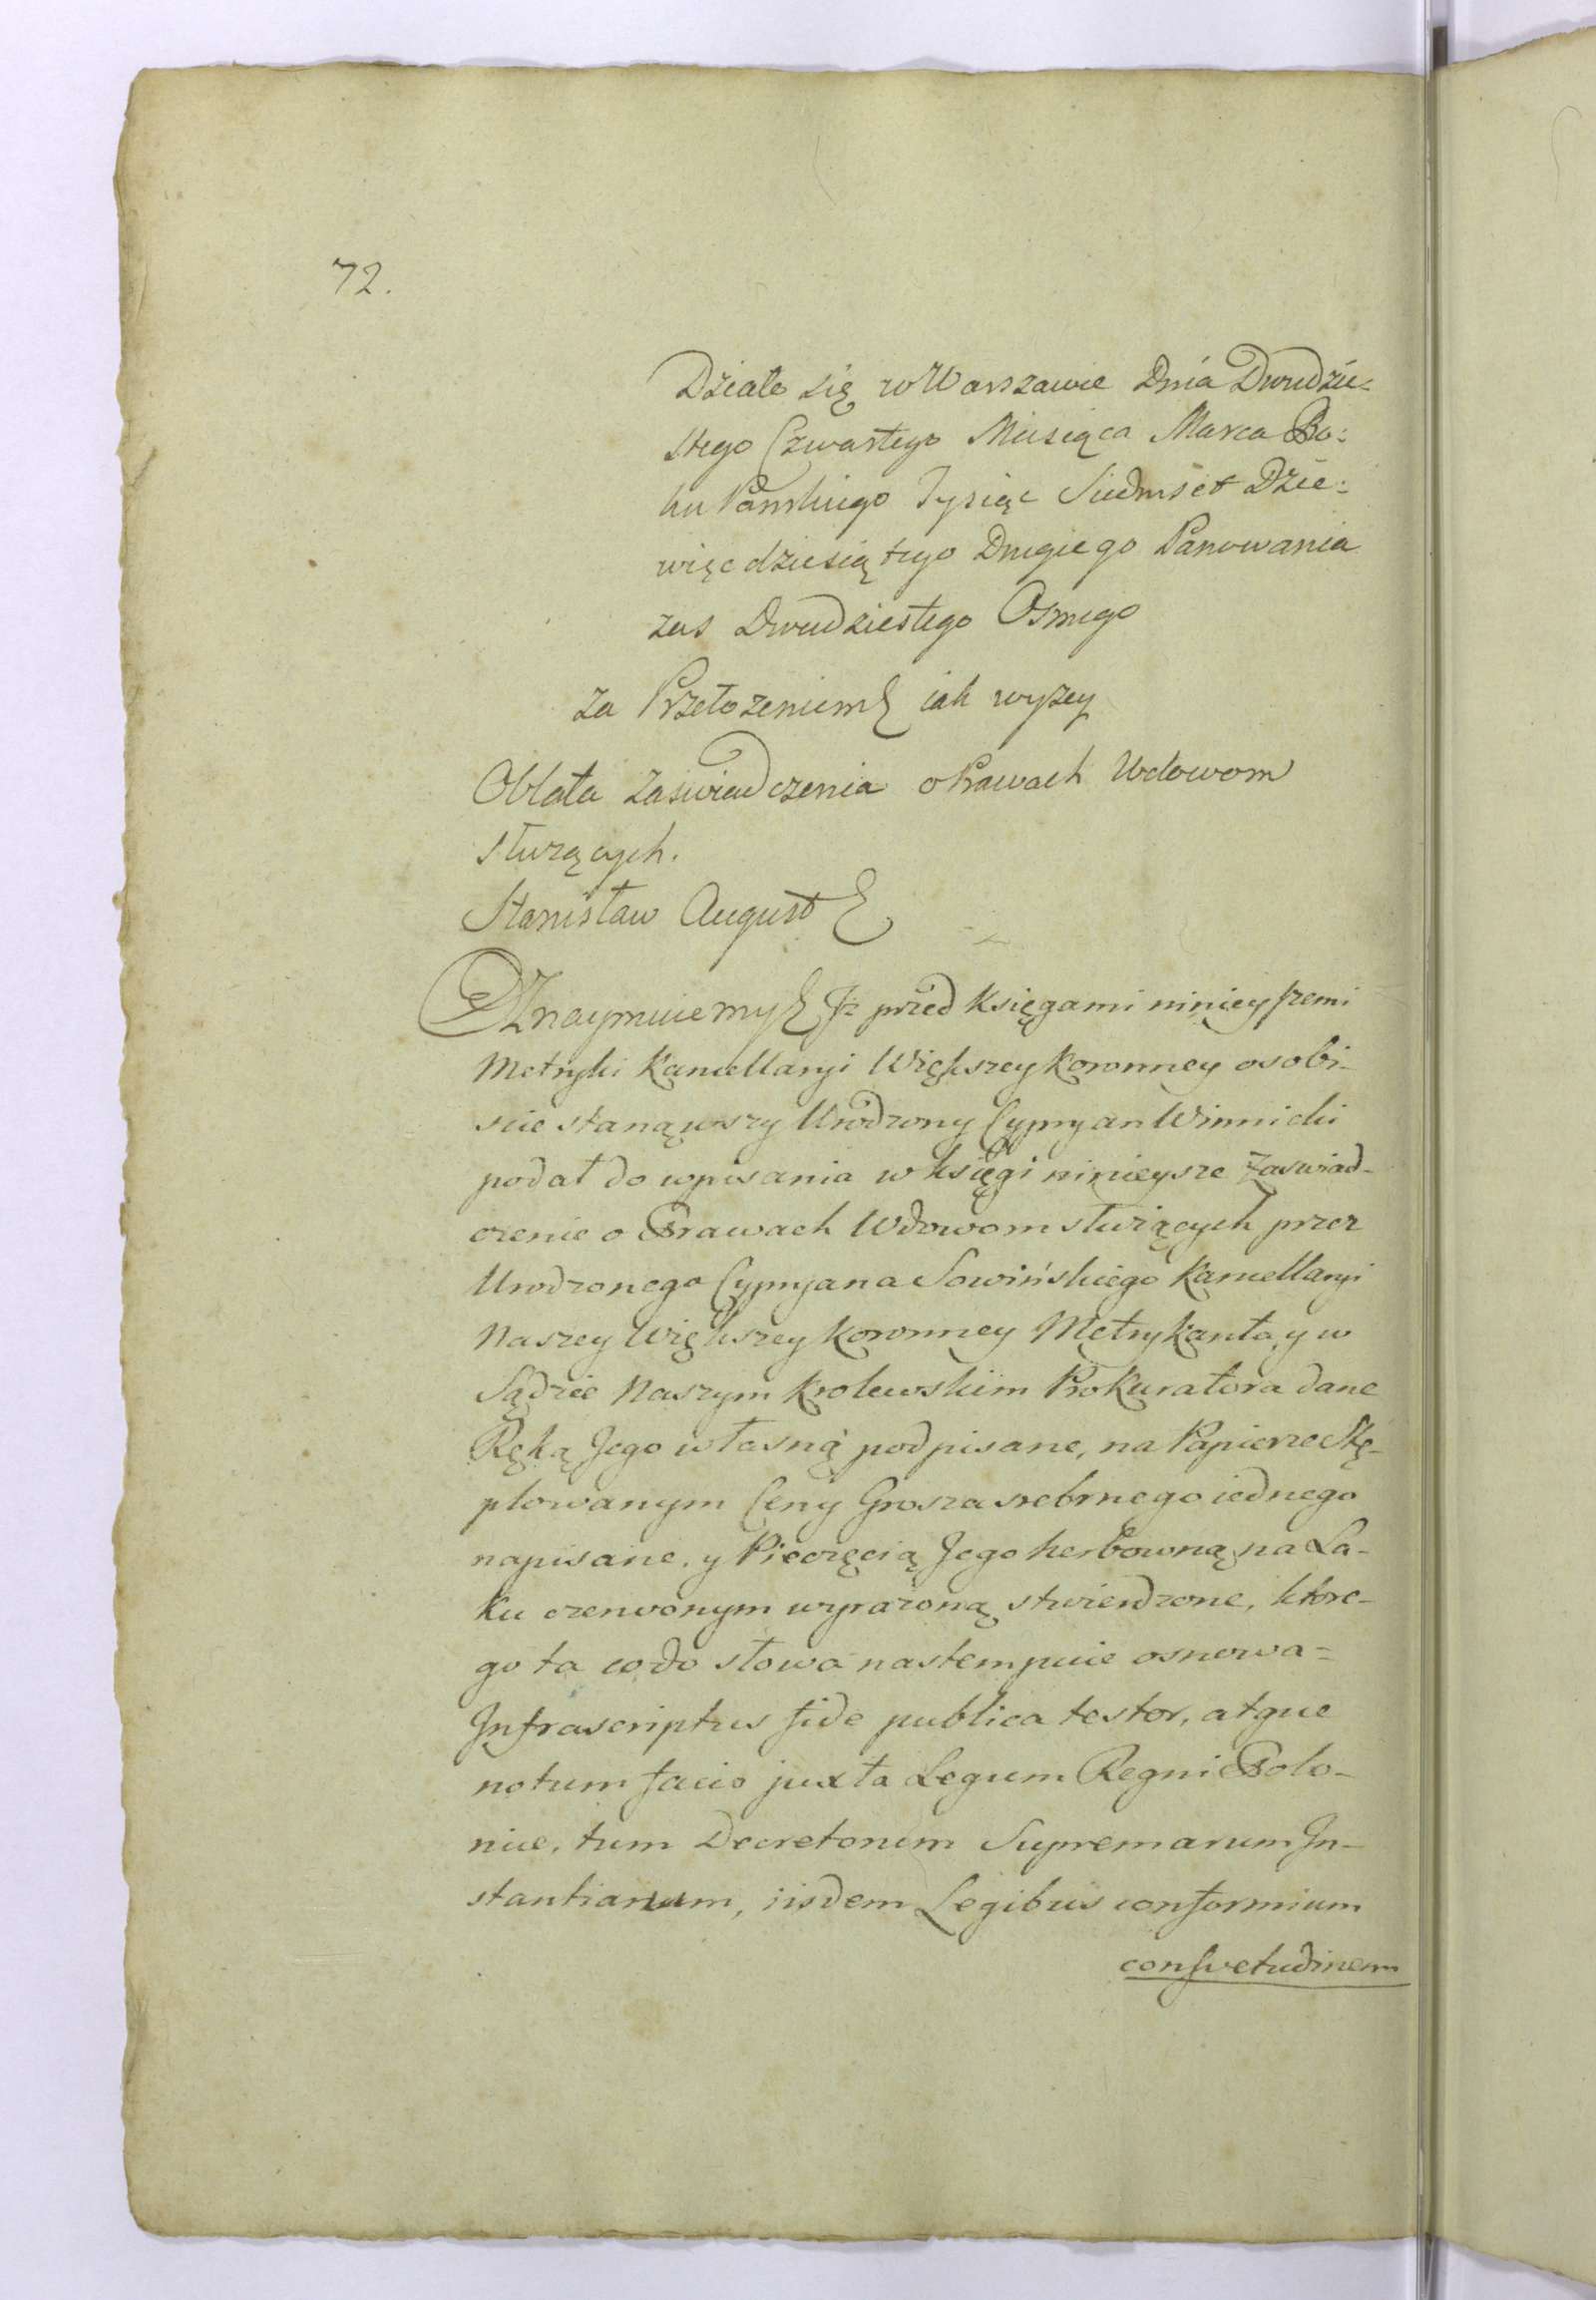 72.
Działo się w Warszawie Dnia Dwudzie:
stego Czwartego Miesiąca Marca Ro:
ku Pańskiego Tysiąc Siedmset Dzie:
więcdziesiątego Drugiego Panowania
zas Dwudziestego Osmego
za Przełozeniem iak wyzey
Oblata zaswiadczenia o Prawach Wdowom
słuzących.
Stanisław August
Oznaymuiemy Jz przed Księgami ninieyszemi
Metryki Kancellaryi Większey Koronney osobi-
scie stanąwszy Urodzony Cypryan Winnicki
podał do wpisania w księgi ninieysze zaswiad-
czenie o Prawach Wdowom słuzących przez
Urodzonego Cypryana Sowińskiego Kancellaryi
Naszey Większey Koronney Metrykanta, y w
Sądzie Naszym Krolewskim Prokuratora dane
Ręką Jego własną podpisane, na Papierze Stę-
plowanym Ceny Grosza srebrnego iednego
napisane, y Pieczęcią Jego herbowną na La-
ku czerwonym wyrazoną stwierdzone, ktore-
go ta co do słowa nastempuie osnowa =
Infrascriptus fide publica testor, atque
notum facio juxta Legum Regni Polo-
niae, tum Decretorum Supremarum In-
stantiarum, iisdem Legibus conformium
consvetudinem